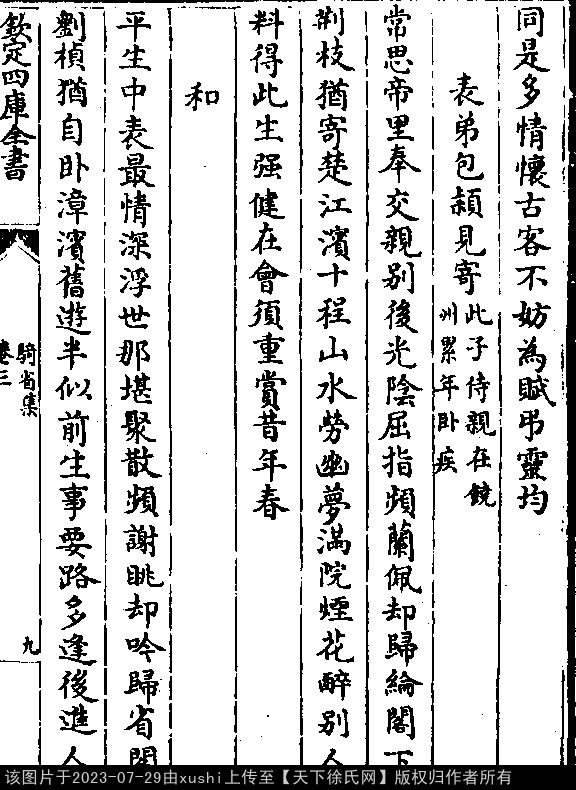 同是多情懷古客不妨為賦弔靈均
表弟包頴見寄此子侍親在饒
州累年卧疾
常思帝里奉交親别後光陰屈指頻蘭佩却歸綸閣下
荆枝猶寄楚江濱十程山水勞幽夢滿院煙花醉别人
料得此生强健在會須重賞昔年春
和
平生中表最情深浮世那堪聚散頻謝眺却吟歸省閣
劉楨猶自卧漳濱舊遊半似前生事要路多逢後進人
欽定四庫全書
騎省集
卷三
九
该图片于2023-07-29由xushi上传至【天下徐氏网】版权归作者所有